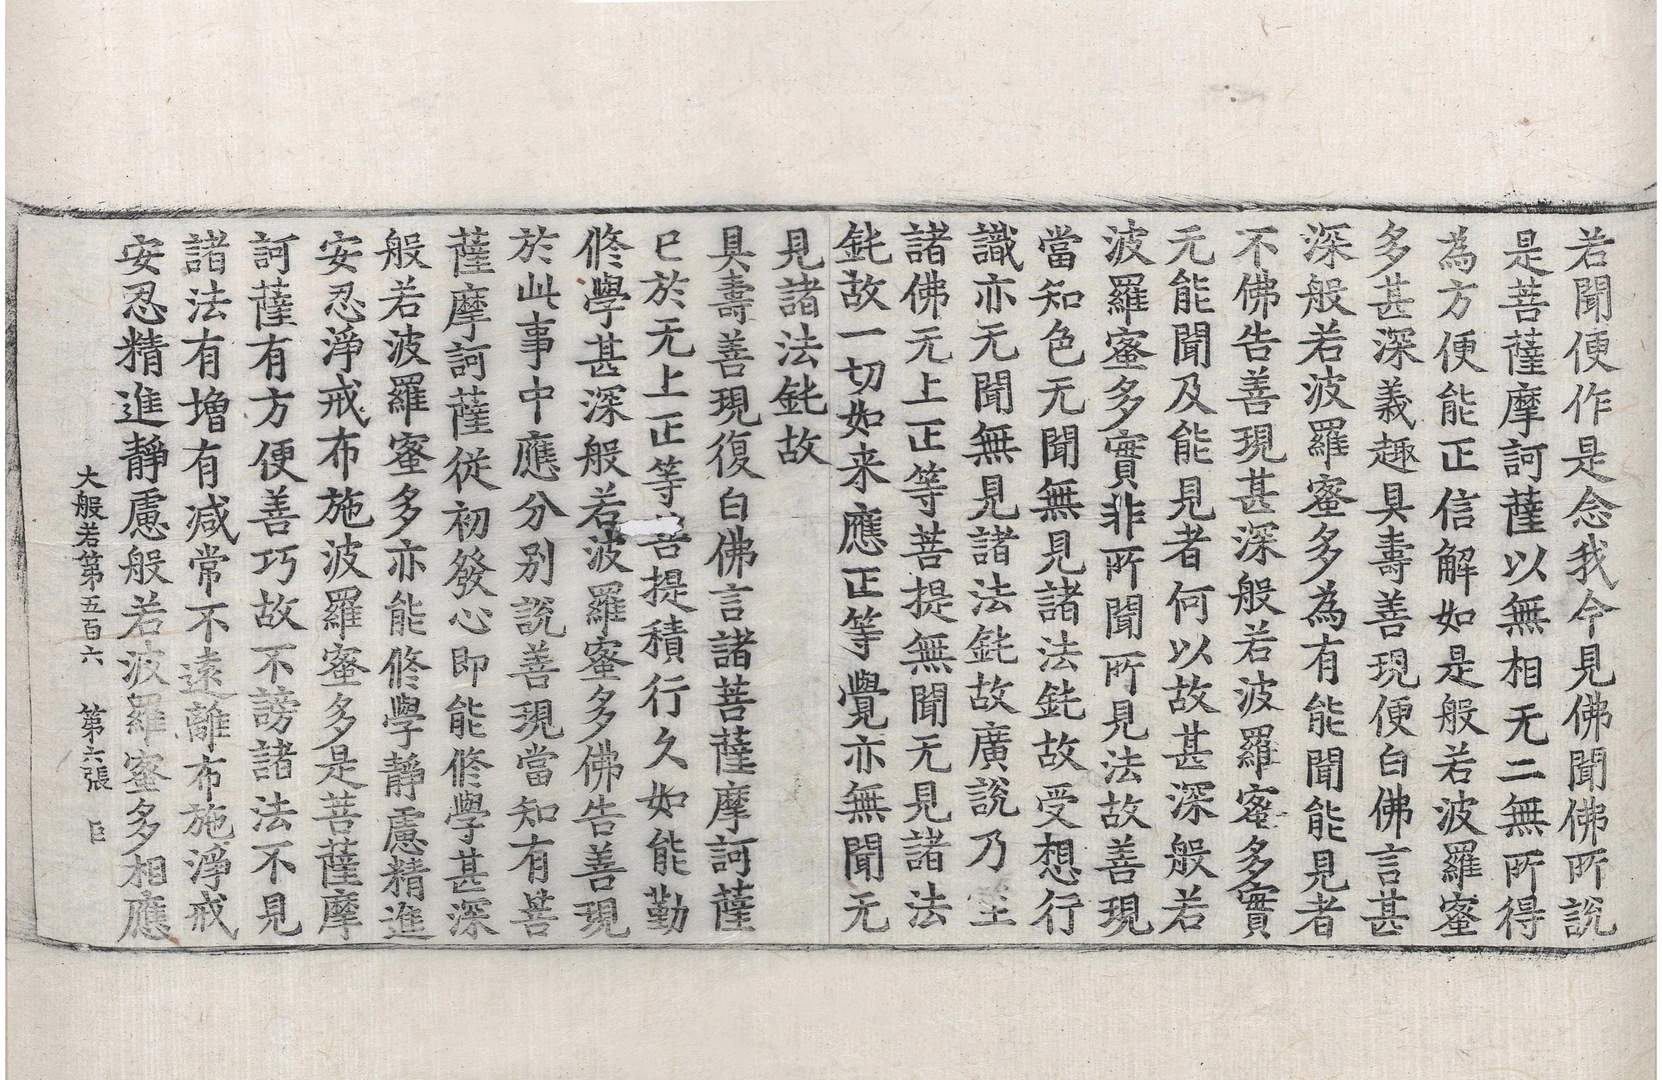 若聞便作是念我今見佛聞佛所說
是菩薩摩訶薩以無相无二無所得
為方便能正信解如是般若波羅蜜
多甚深義趣具壽善現便白佛言甚
深般若波羅蜜多為有能聞能見者
不佛告善現甚深般若波羅蜜多實
无能聞及能見者何以故甚深般若
波羅蜜多實非所聞所見法故善現
當知色无聞無見諸法鈍故受想行
識亦无聞無見諸法鈍故廣說乃至
諸佛无上正等菩提無聞无見諸法
鈍故一切如来應正等覺亦無聞无
見諸法鈍故
具壽善現復白佛言諸菩薩摩訶薩
已於无上正等菩提積行久如能勤
修學甚深般若波羅蜜多佛告善現
於此事中應分别說善現當知有菩
薩摩訶薩從初發心即能修學甚深
般若波羅蜜多亦能修學靜慮精進
安忍淨戒布施波羅蜜多是菩薩摩
訶薩有方便善巧故不謗諸法不見
諸法有增有减常不遠離布施淨戒
安忍精進靜慮般若波羅蜜多相應
大般若第五百六 第六張